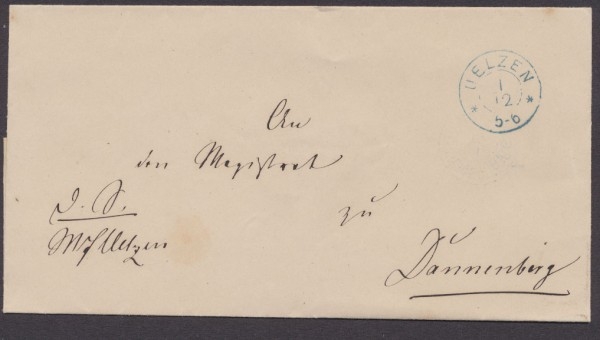 * UELZEN *
1
12
5-6
An
den Magistrat
D. S.
zu
Mg Uelzen
Dannenberg